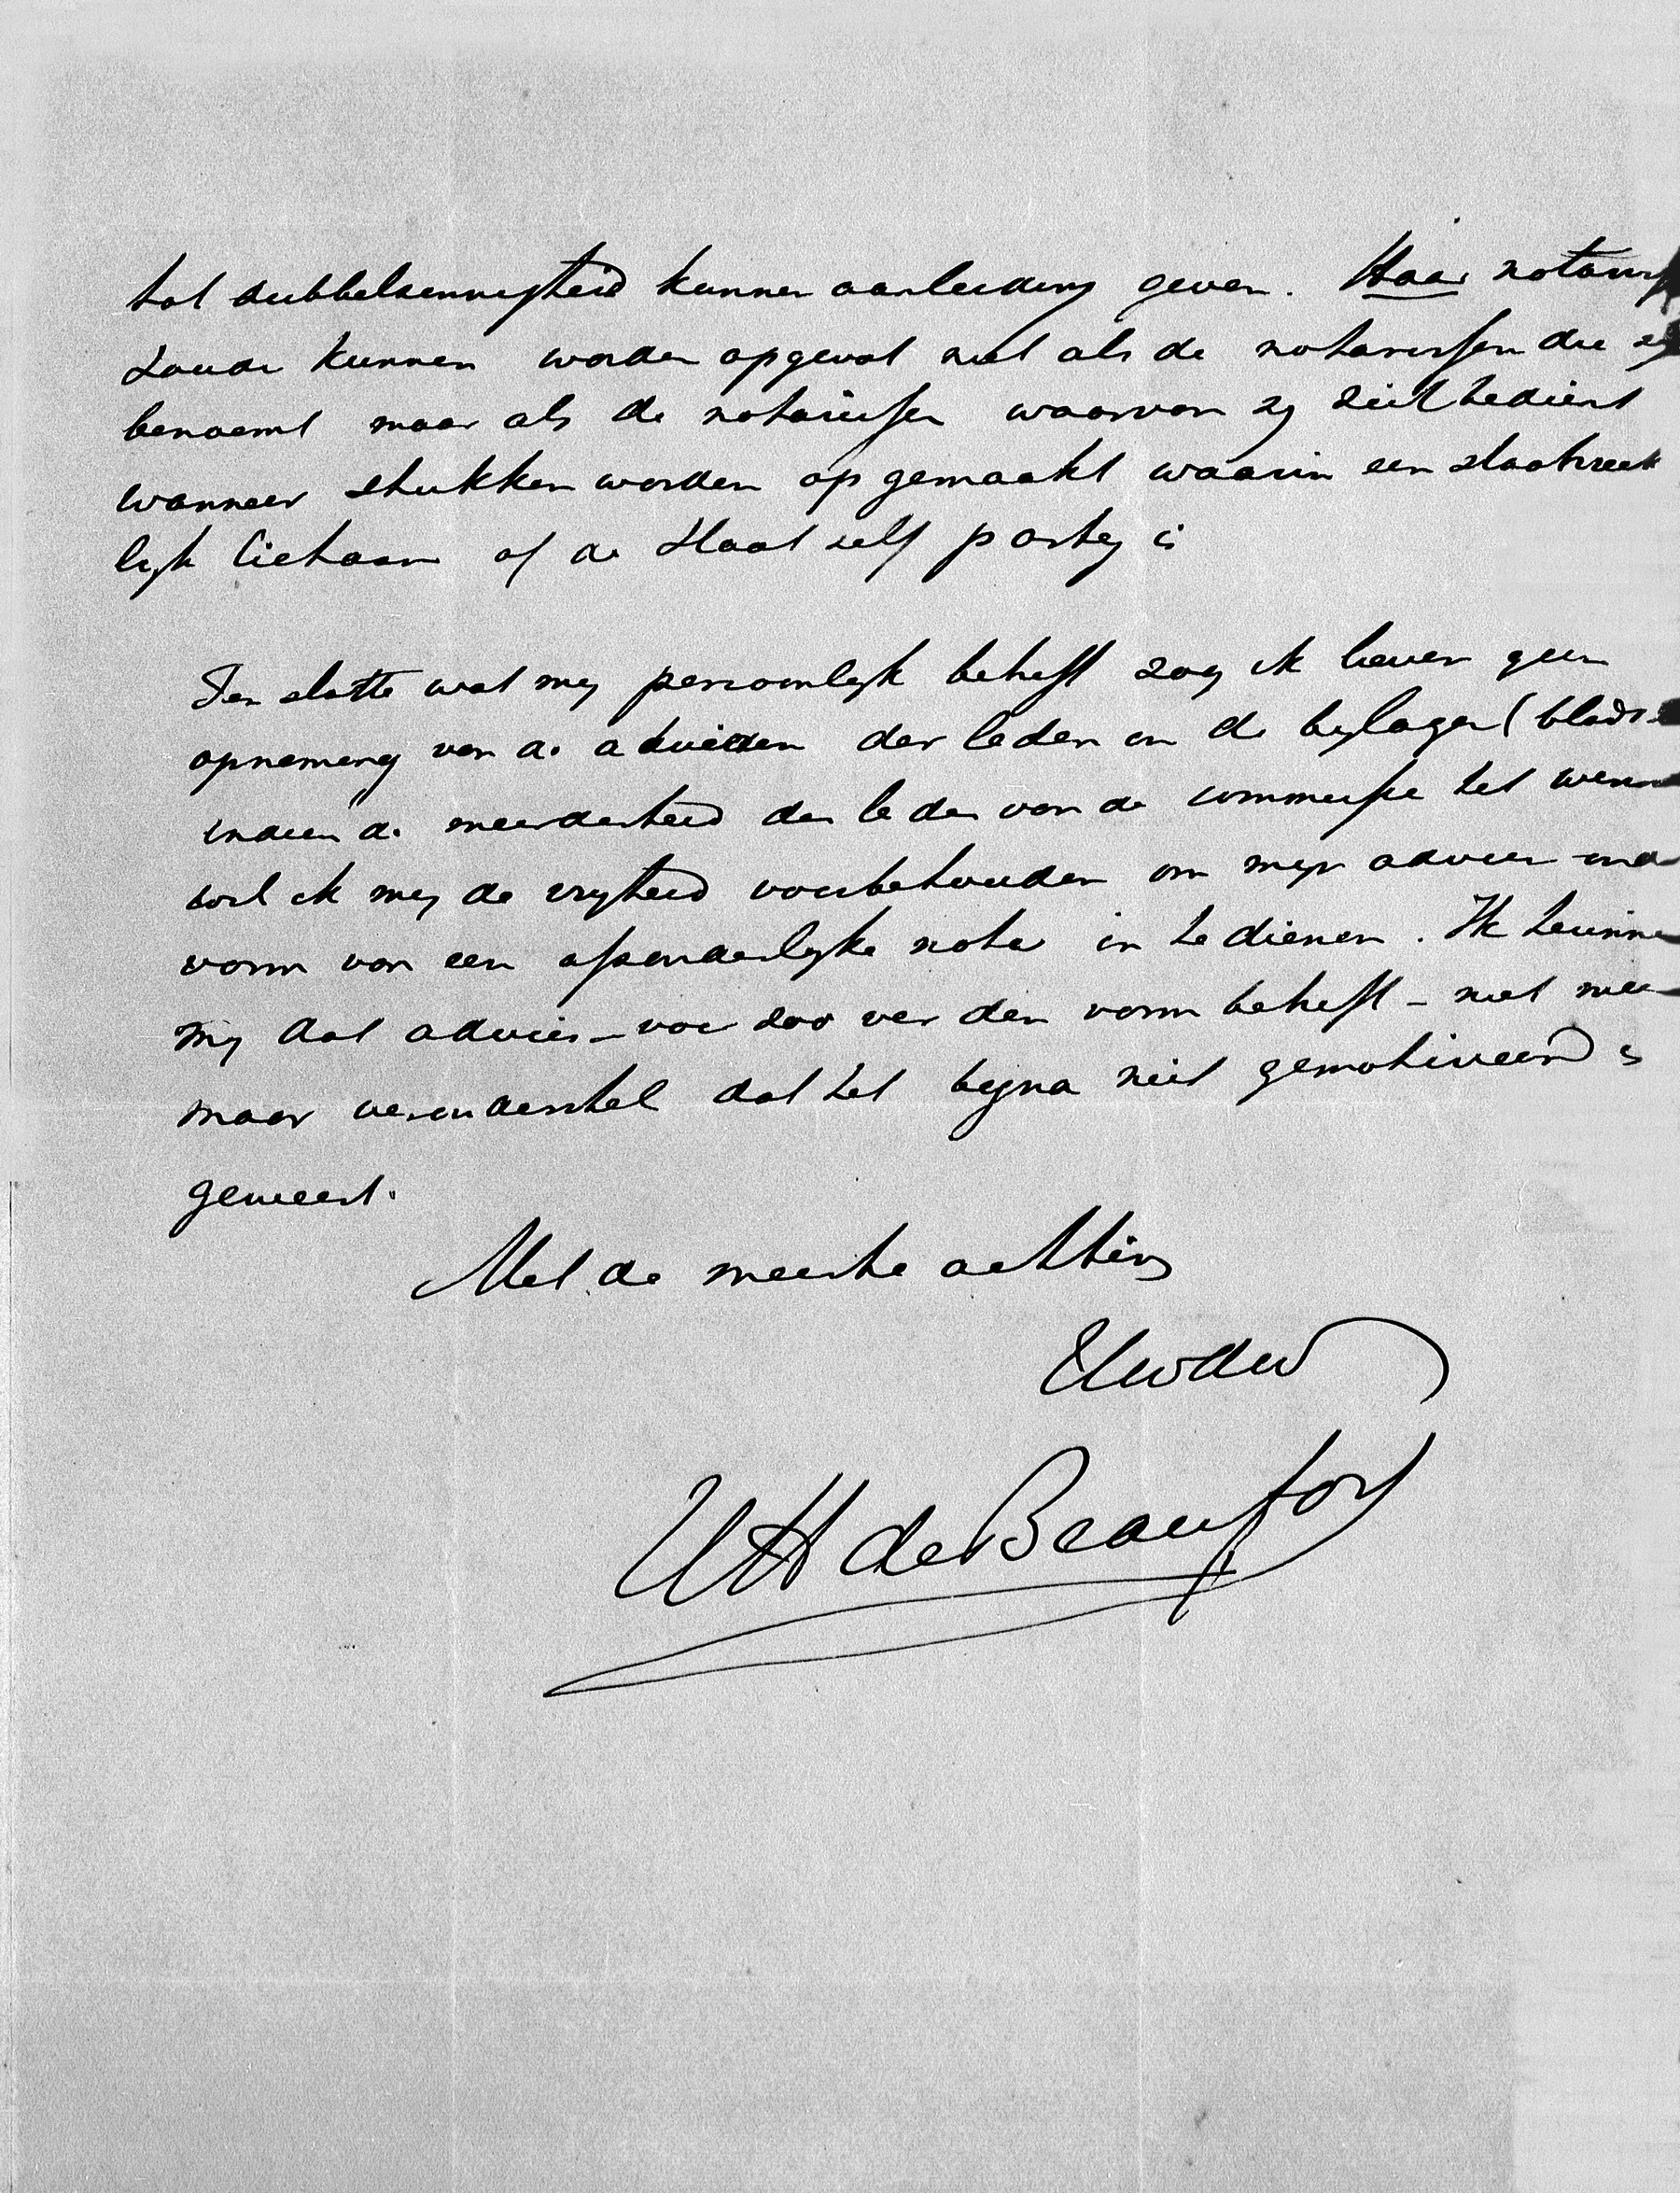 tot dubbelzinnigheid kunnen aanleiding geven. Haar notariss
zoude kunnen worden opgevat niet als de notarissen die zij
benoemt maar als de notarissen waarvan zij zich bedient
wanneer stukken worden opgemaakt waarin een staatsrech
lijk lichaam of de Staat zelf partij is
Ten slotte wat mij persoonlijk betreft zag ik liever geen
opneming van de adviezen der leden in de bijlagen (bladz.
indien de meerderheid der leden van de commissie het wens
wil ik mij de vrijheid voorbehouden om mijn advies in d
vorm van een afzonderlijke nota in te dienen. Ik herinner
mij dat advies – voor zoo ver den vorm betreft – niet mee
maar veronderstel dat het bijna niet gemotiveerd is
geweest.
Met de meeste achting
UEwdw
WH de Beaufort